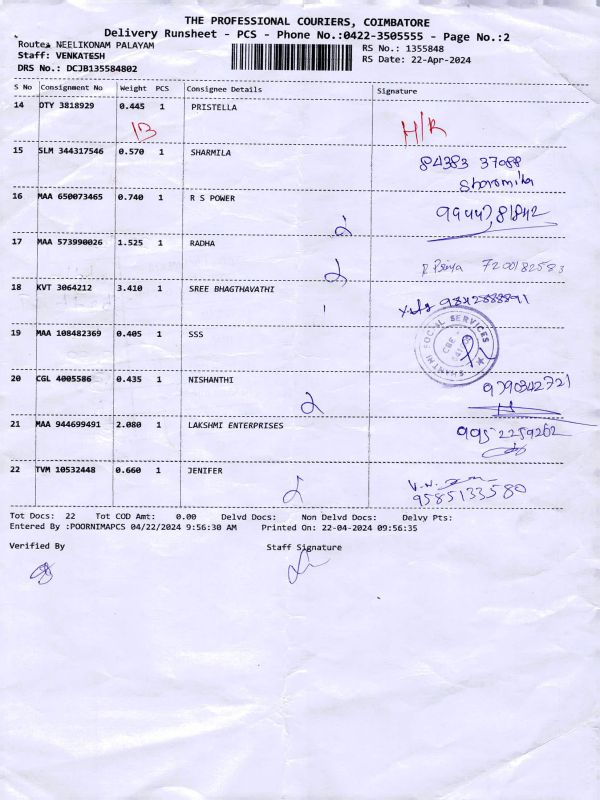 THE PROFESSIONAL COURIERS, COIMBATORE
Delivery Runsheet - PCS - Phone No.:0422-3505555 - Page No.:2
Route: NEELIKONAM PALAYAM
Staff: VENKATESH
DRS No.: DCJB135584802
RS No.: 1355848
RS Date: 22-Apr-2024
S No Consignment No Weight PCS Consignee Details Signature
14 OTY 3818929 0.445 1 PRISTELLA
13 H/R
15 SLM 344317546 0.570 1 SHARMILA
84383 37088
Sharomila
16 MAA 650073465 0.740 1 R S POWER
99447, 81842
2
17 MAA 573990026 1.525 1 RADHA
2 R Priya 7200182583
18 KVT 3064212 3.410 1 SREE BHAGTHAVATHI
9342888891
19 MAA 108482369 0.405 1 SSS
SHANTHI SOCIAL SERVICES
CBE
20 CGL 4005586 0.435 1 NISHANTHI
2 9790342721
21 MAA 944699491 2.080 1 LAKSHMI ENTERPRISES
9952259262
22 TVM 10532448 0.660 1 JENIFER
2 9585133580
Tot Docs: 22 Tot COD Amt: 0.00 Delvd Docs: Non Delvd Docs: Delvy Pts:
Entered By :POORNIMAPCS 04/22/2024 9:56:30 AM Printed On: 22-04-2024 09:56:35
Verified By Staff Signature